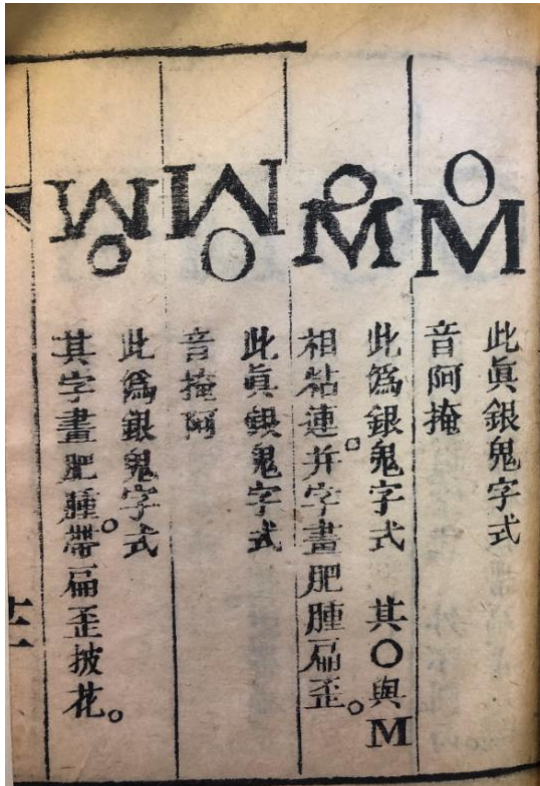 O
M
此眞銀鬼字式
音阿掩
O
M
此僞銀鬼字式 其〇與M
相粘連。并字畫肥腫扁歪。
W
O
此眞銀鬼字式
音掩阿
W
O
此僞銀鬼字式
其字畫肥腫。帶扁歪披花。